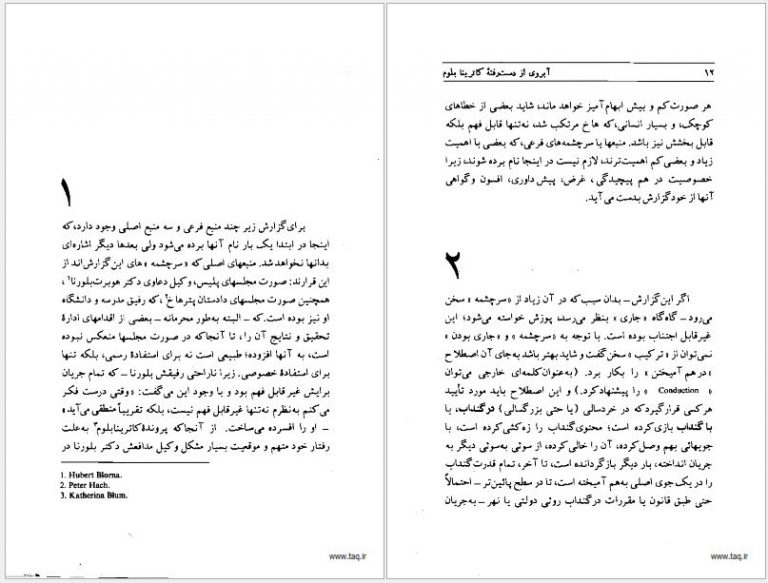 ۱
برای‌گزارش زیر چند منبع فرعی و سه منبع اصلی وجود دارد،که
اینجا در ابتدا یک بار نام آنها برده می‌شود ولی بعدها دیگر اشاره‌ای
بدانها نخواهدشد. منبعهای اصلی‌که «سرچشمه» های این‌گزارش‌اند از
این قرارند: صورت مجلسهای پلیس، وکیل دعاوی دکتر هوبرت‌بلورنا۱،
همچنین صورت مجلسهای دادستان پترهاخ۲،که رفیق مدرسه و دانشگاه
او نیز بوده است.که ــ البته به‌طور محرمانه ــ بعضی از اقدامهای ادارهٔ
تحقیق و نتایج آن را، تا آنجاکه در صورت مجلسها منعکس نبوده
است، به آنها افزوده؛ طبیعی است نه برای استفادهٔ رسمی، بلکه تنها
برای‌استفادهٔ خصوصی. زیرا ناراحتی رفیقش بلورنا ــ که تمام جریان
برایش غیر قابل فهم بود و با وجود این می‌گفت: «وقتی درست فکر
می‌کنم به‌نظرم نه‌تنها غیرقابل فهم نیست، بلکه تقریباً منطقی می‌آید»
ــ او را افسرده می‌ساخت. از آنجاکه پروندهٔ‌کاترینابلوم۳ به‌علت
رفتار خود متهم و موقعیت بسیار مشکل وکیل مدافعش دکتر بلورنا در
1. Hubert Blorna.
2. Peter Hach.
3. Katherina Blum.
www.taq.ir
۱۲
آبروی از دست‌رفتهٔ کاترینا بلوم
هر صورت‌کم و بیش ابهام‌آمیز خواهد ماند، شاید بعضی از خطاهای
کوچک، و بسیار انسانی،که هاخ مرتکب شد، نه‌تنها قابل فهم بلکه
قابل بخشش نیز باشد. منبعها یا سرچشمه‌های فرعی،که بعضی با اهمیت
زیاد و بعضی‌کم اهمیت‌ترند، لازم نیست در اینجا نام برده شوند، زیرا
خصوصیت در هم پیچیدگی، غرض، پیش‌داوری، افسون وگواهی
آنها از خودگزارش بدست می‌آید.
۲
اگر این‌گزارش ــ بدان سبب‌که در آن زیاد از «سرچشمه» سخن
می‌رود ــ گاه‌گاه «جاری» بنظر می‌رسد، پوزش خواسته می‌شود؛ این
غیرقابل اجتناب بوده است. با توجه به «سرچشمه» و «جاری بودن»
نمی‌توان از «ترکیب» سخن‌گفت و شاید بهتر باشد به‌جای آن اصطلاح
«درهم آمیختن» را بکار برد. (به‌عنوان‌کلمه‌ای خارجی می‌توان
« Conduction » را پیشنهادکرد.) و این اصطلاح باید مورد تأیید
هرکسی قرارگیردکه در خردسالی (یا حتی بزرگسالی) درگنداب، یا
با گنداب بازی‌کرده است؛ محتوی‌گنداب را زه‌کشی‌کرده است، با
جویهائی بهم وصل‌کرده، آن را خالی‌کرده، از سوئی به‌سوئی دیگر به
جریان انداخته، بار دیگر بازگردانده است، تا آخر، تمام قدرت‌گنداب
را در یک‌جوی اصلی به‌هم آمیخته است، تا در سطح پائین‌تر ــ احتمالاً
حتی طبق قانون یا مقررات درگنداب روئی دولتی یا نهر ــ به‌جریان
www.taq.ir